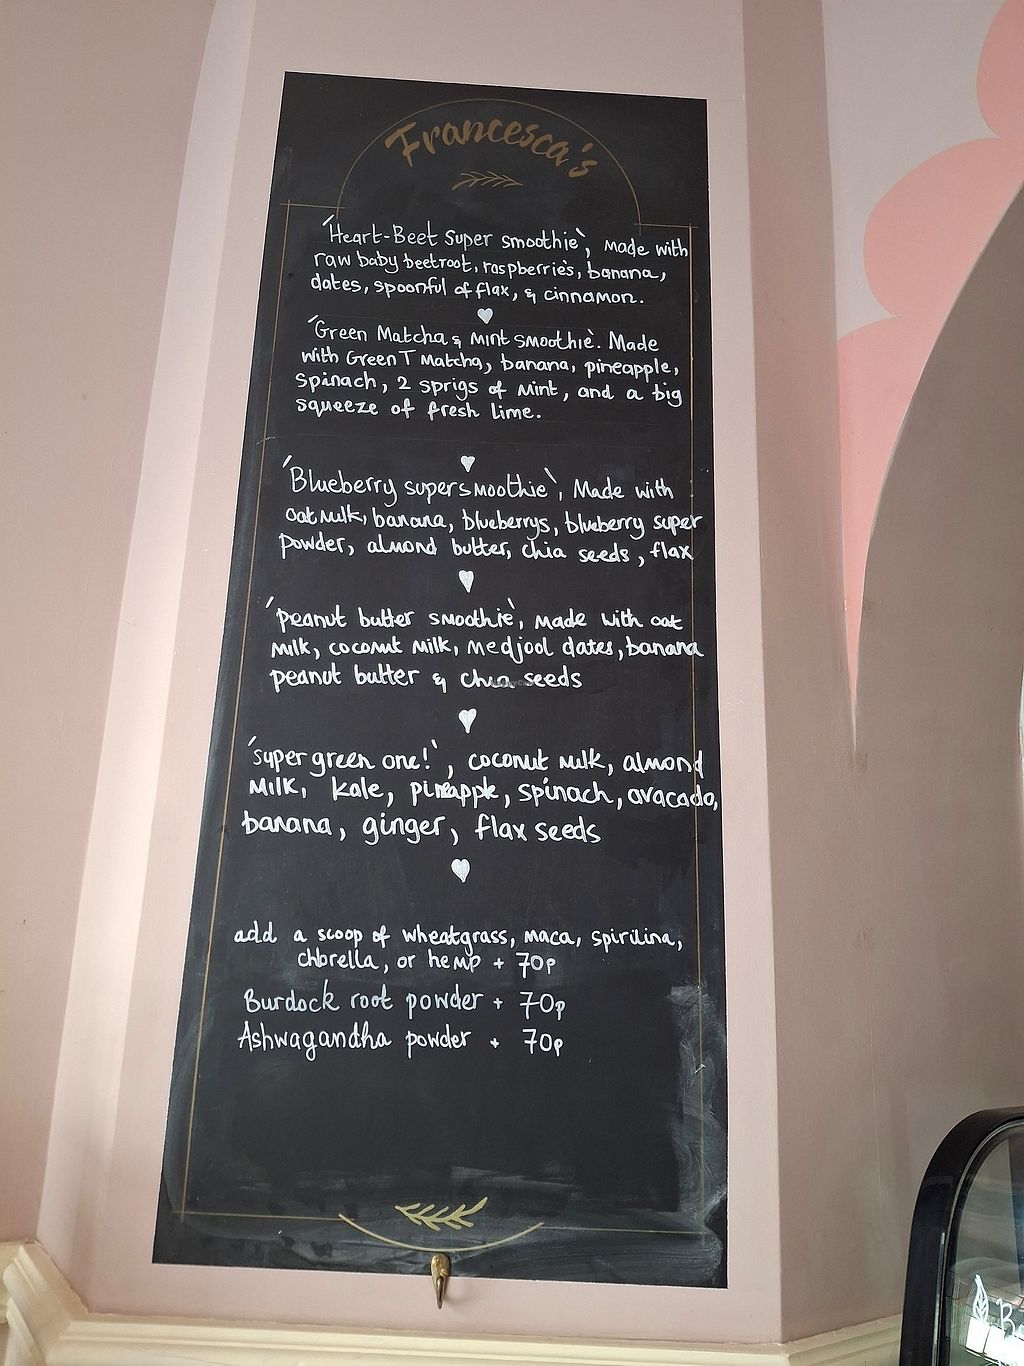 Francesca's
'Heart-Beet Super smoothie', made with
raw baby beetroot, raspberries, banana,
dates, spoonful of flax, & cinnamon.
'Green Matcha & Mint smoothie'. Made
with Green T Matcha, banana, pineapple,
spinach, 2 sprigs of Mint, and a big
squeeze of fresh lime.
'Blueberry supersmoothie', Made with
oat milk, banana, blueberrys, blueberry super
powder, almond butter, chia seeds, flax
'peanut butter smoothie', made with oat
milk, coconut milk, medjool dates, banana
peanut butter & chia seeds
'super green one!', coconut milk, almond
milk, kale, pineapple, spinach, avacado,
banana, ginger, flax seeds
add a scoop of wheatgrass, maca, spirilina,
chlorella, or hemp + 70p
Burdock root powder + 70p
Ashwagandha powder + 70p